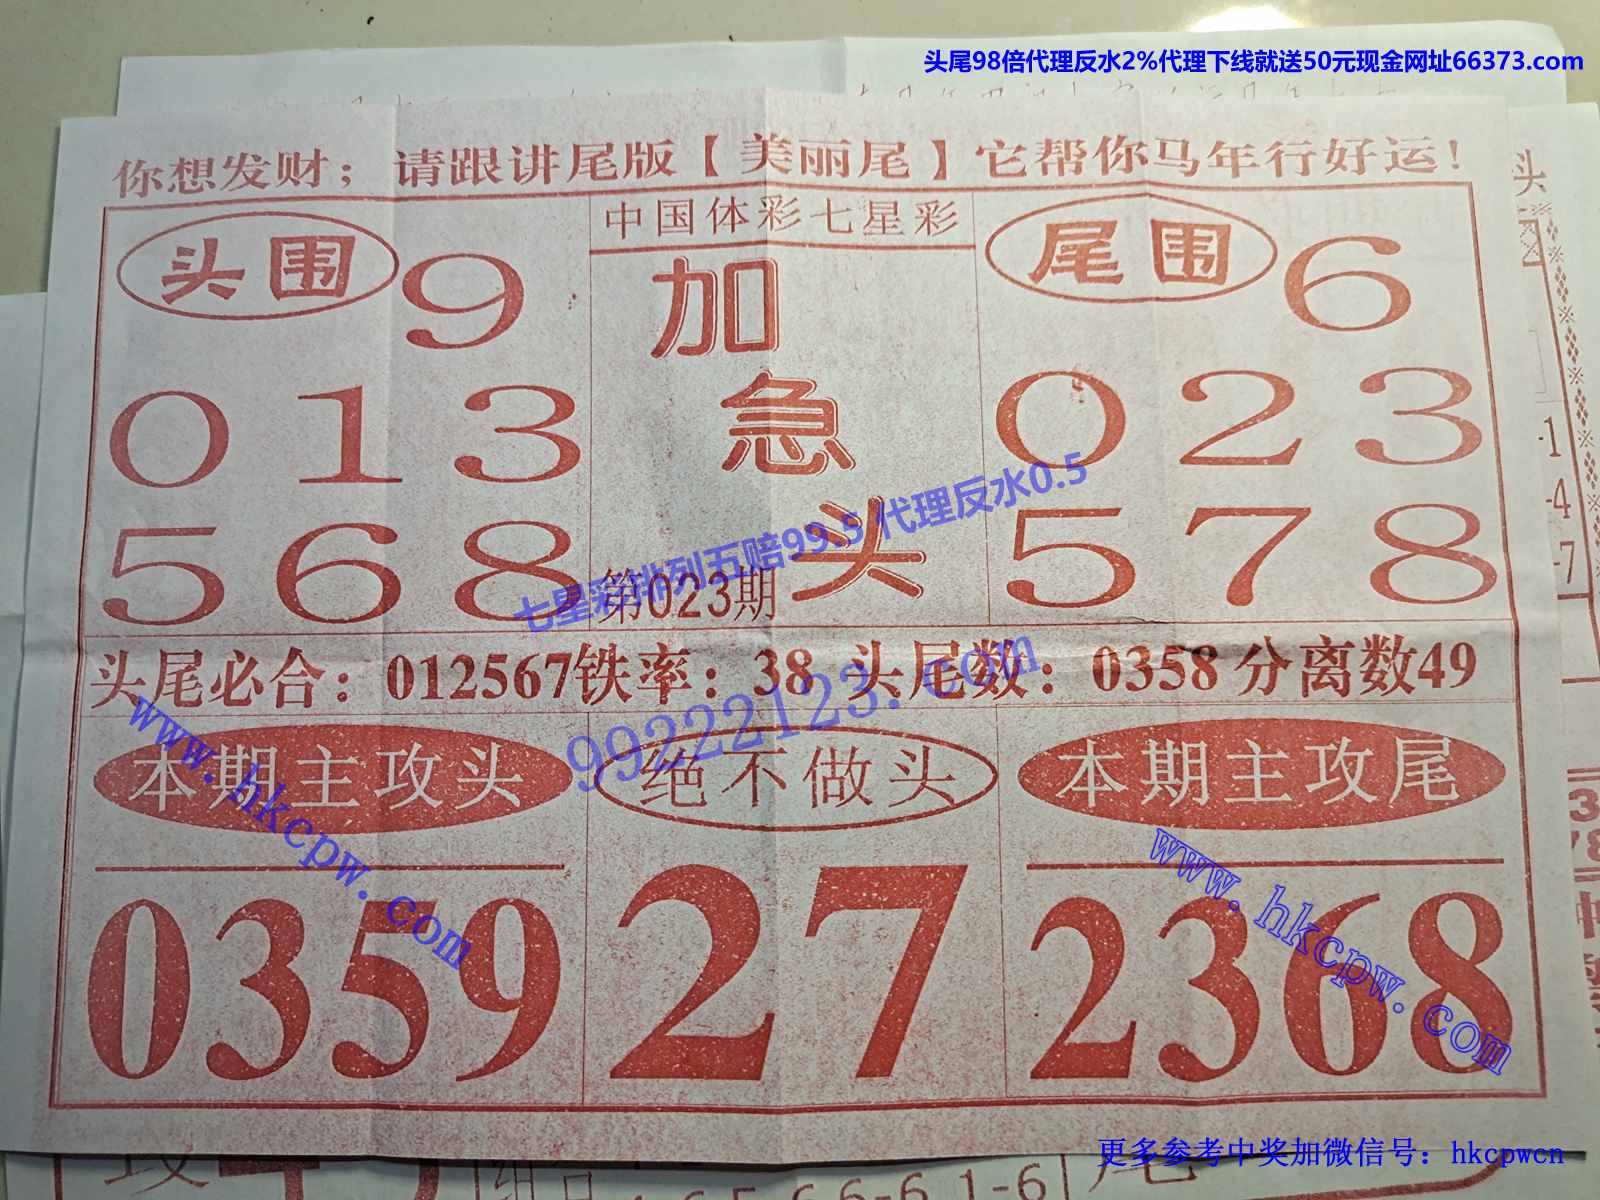 头尾98倍代理反水2%代理下线就送50元现金网址66373.com
你想发财；请跟讲尾版【美丽尾】它帮你马年行好运！
头围 9
0 1 3
5 6 8
中国体彩七星彩
加
急
头
第023期
尾围 6
0 2 3
5 7 8
七星彩排列五赔99.5 代理反水0.5
头尾必合：012567铁率：38 头尾数：0358 分离数49
99222123.com
本期主攻头
0359
绝不做头
27
本期主攻尾
2368
www.hkcpw.com
www.hkcpw.com
头
-1
-4
-7
更多参考中奖加微信号：hkcpwcn
1-6